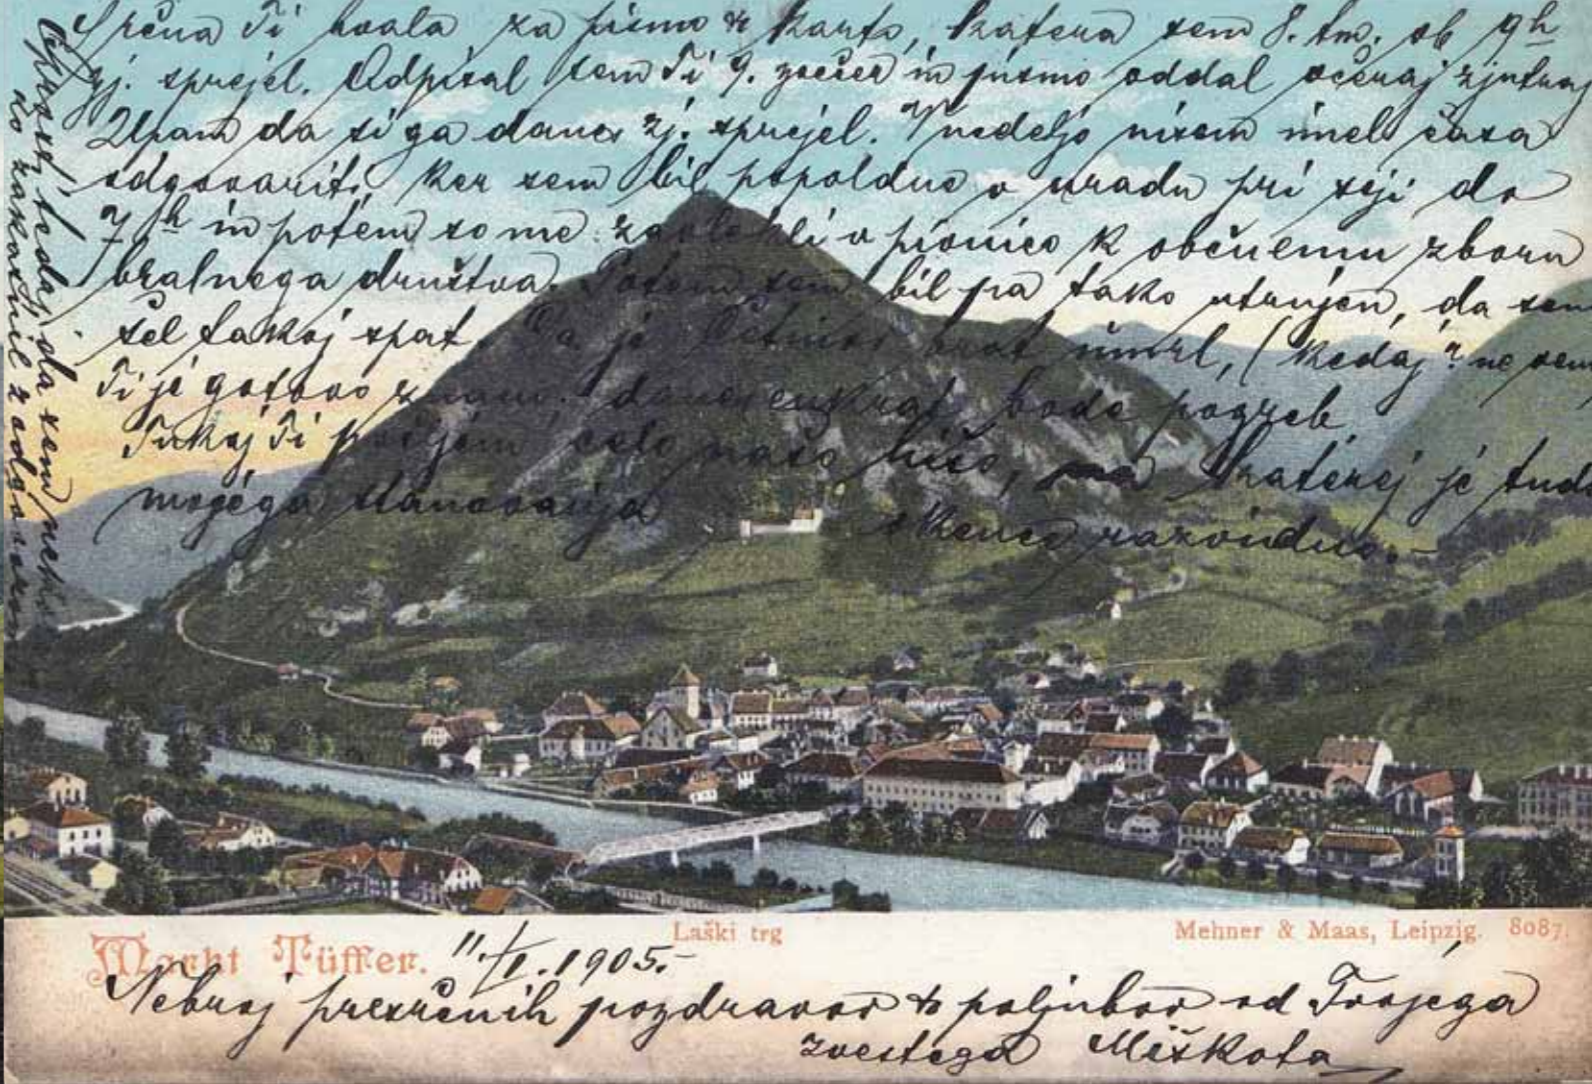 Srčna Ti hvala za pismo & karto, katera sem 8. tm. ob 9h
zj. sprejel. Odpisal sem Ti 9. zvečer in pismo oddal včeraj zjutraj
Upam da si ga danes zj. sprejel. V nedeljo nisem imel časa
odgovoriti, ker sem bil popoldne v uradu pri seji do
7h in potem so me zavlekli v pivnico k občnemu zboru
bralnega društva. Potem sem bil pa tako utrujen, da sem
šel takoj spat. Da je brat umrl, (kedaj? ne vem
Ti je gotovo znano. danes enkrat bode pogreb
Tukaj Ti pošljem celo našo hišo, na katerej je tudi
mojega stanovanja okence razvidno.-
Oprosti tedaj, da sem neko-
liko zakasnil z odgovorom
Markt Tüffer.
Laški trg
Mehner & Maas, Leipzig. 8087.
11./I. 1905.-
Nebroj presrčnih pozdravov & poljubov od Tvojega
zvestega Miškota